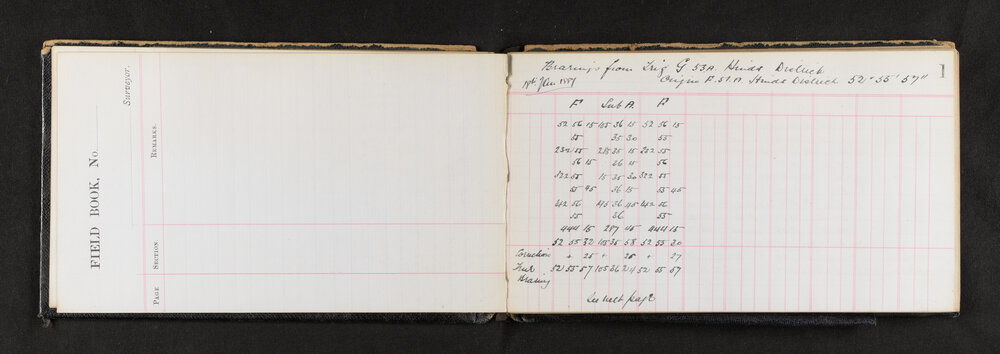 FIELD BOOK, No.
Surveyor.
PAGE
SECTION.
REMARKS.
1
Bearings from Trig G 53A. Hinds District
19th Jan 1887
Origin F. 57. A Hinds District 52° 55' 57"
F Sub A. F
52 56 15 105 36 15 52 56 15
55 35 30 55
232 55 285 35 15 232 55
56 15 36 15 56
322 55 15 35 30 322 55
55 45 36 15 55 45
142 56 195 36 45 142 56
55 36 55
444 15 287 45 444 15
52 55 32 105 35 58 52 55 30
Correction + 25 + 26 + 27
True 52 55 57 105 36 24 52 55 57
Bearing
See next page